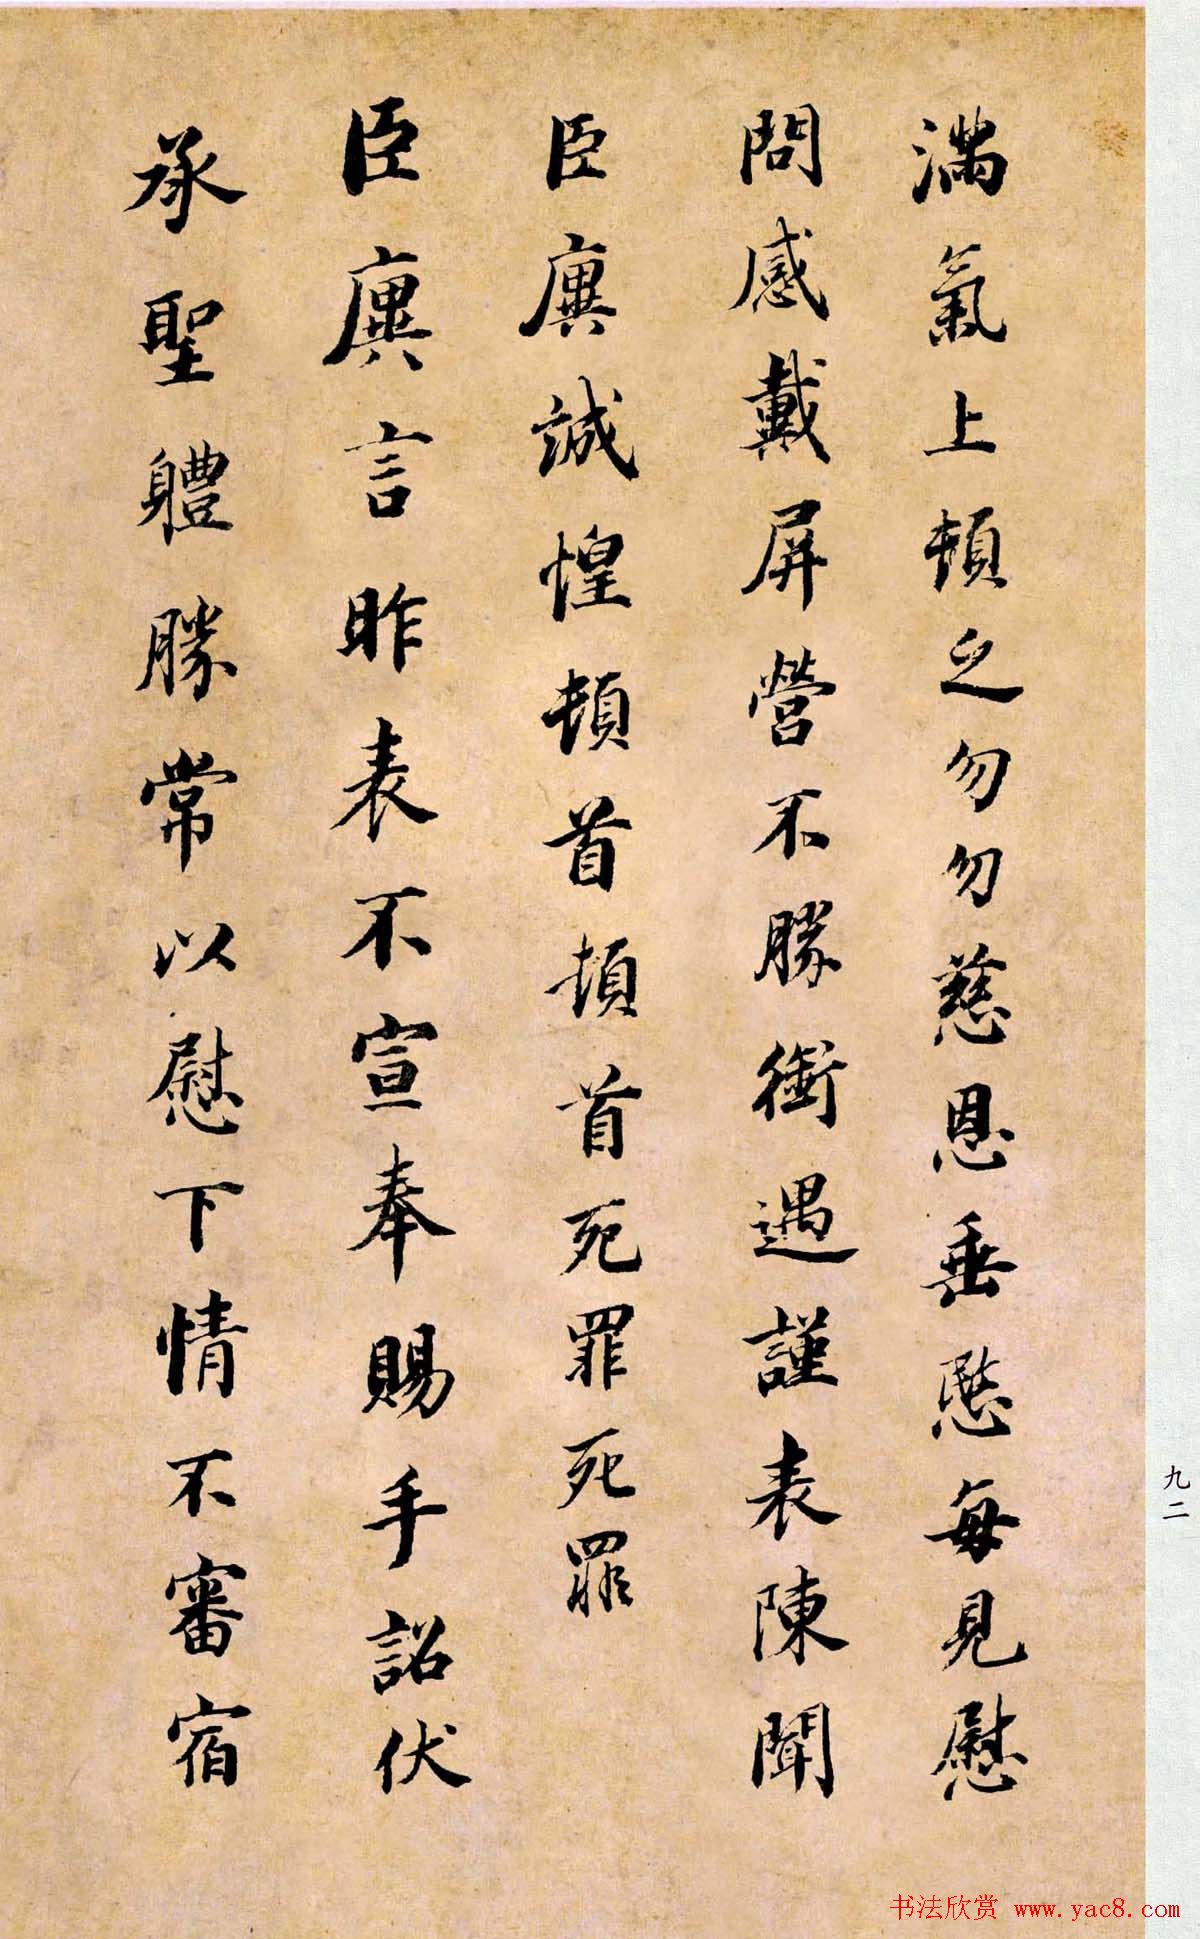 滿氣上頓乏勿勿慈恩垂愍每見慰
問感戴屏營不勝銜遇謹表陳聞
臣廙誠惶頓首頓首死罪死罪
臣廙言昨表不宣奉賜手詔伏
承聖體勝常以慰下情不審宿
九二
书法欣赏 www.yac8.com